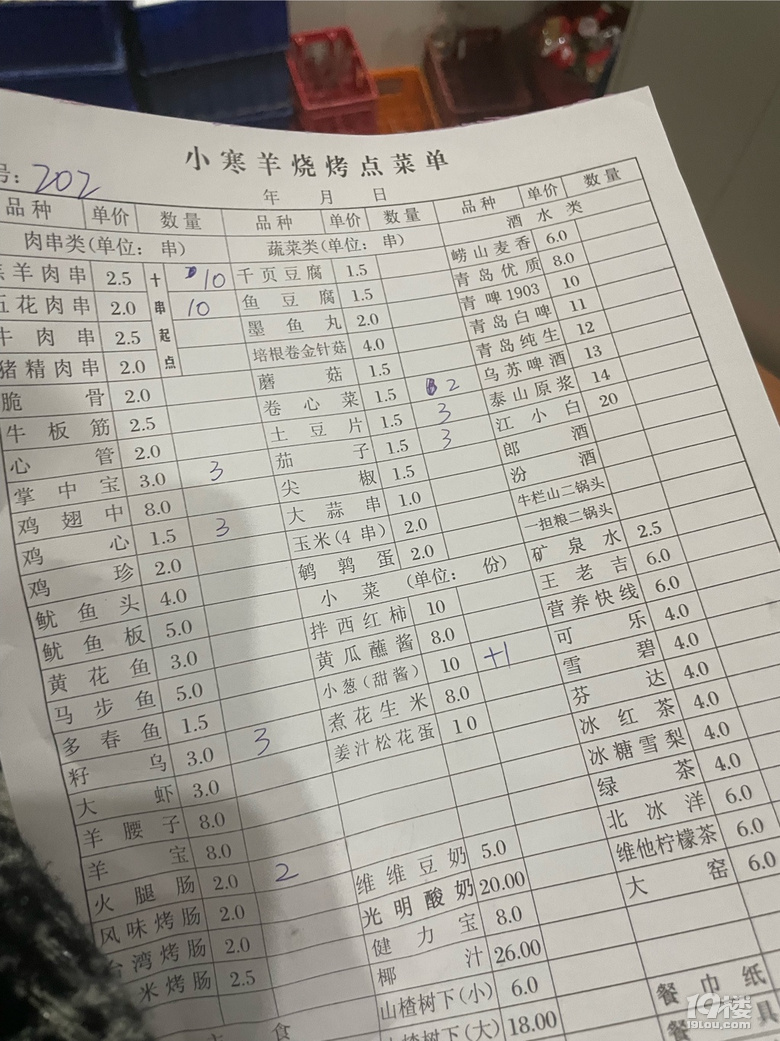 小寒羊烧烤点菜单
号: 202
年 月 日
品种 单价 数量
肉串类(单位: 串)
羊肉串 2.5 10
五花肉串 2.0 10
牛肉串 2.5
猪精肉串 2.0
十串起点
脆骨 2.0
牛板筋 2.5
心管 2.0
掌中宝 3.0 3
鸡翅中 8.0
鸡心 1.5 3
鸡珍 2.0
鱿鱼头 4.0
鱿鱼板 5.0
黄花鱼 3.0
马步鱼 5.0
多春鱼 1.5
籽乌 3.0 3
大虾 3.0
羊腰子 8.0
羊宝 8.0
火腿肠 2.0 2
风味烤肠 2.0
台湾烤肠 2.0
米烤肠 2.5
主食
品种 单价 数量
蔬菜类(单位: 串)
千页豆腐 1.5
鱼豆腐 1.5
墨鱼丸 2.0
培根卷金针菇 4.0
蘑菇 1.5
卷心菜 1.5 2
土豆片 1.5 3
茄子 1.5 3
尖椒 1.5
大蒜串 1.0
玉米(4串) 2.0
鹌鹑蛋 2.0
小菜 (单位: 份)
拌西红柿 10
黄瓜蘸酱 8.0
小葱(甜酱) 10 +1
煮花生米 8.0
姜汁松花蛋 10
维维豆奶 5.0
光明酸奶 20.00
健力宝 8.0
椰汁 26.00
山楂树下(小) 6.0
山楂树下(大) 18.00
品种 单价 数量
酒水类
崂山麦香 6.0
青岛优质 8.0
青啤1903 10
青岛白啤 11
青岛纯生 12
乌苏啤酒 13
泰山原浆 14
江小白 20
郎酒
汾酒
牛栏山二锅头
一担粮二锅头
矿泉水 2.5
王老吉 6.0
营养快线 6.0
可乐 4.0
雪碧 4.0
芬达 4.0
冰红茶 4.0
冰糖雪梨 4.0
绿茶 4.0
北冰洋 6.0
维他柠檬茶 6.0
大窑 6.0
餐巾纸
餐具
19楼
19lou.com